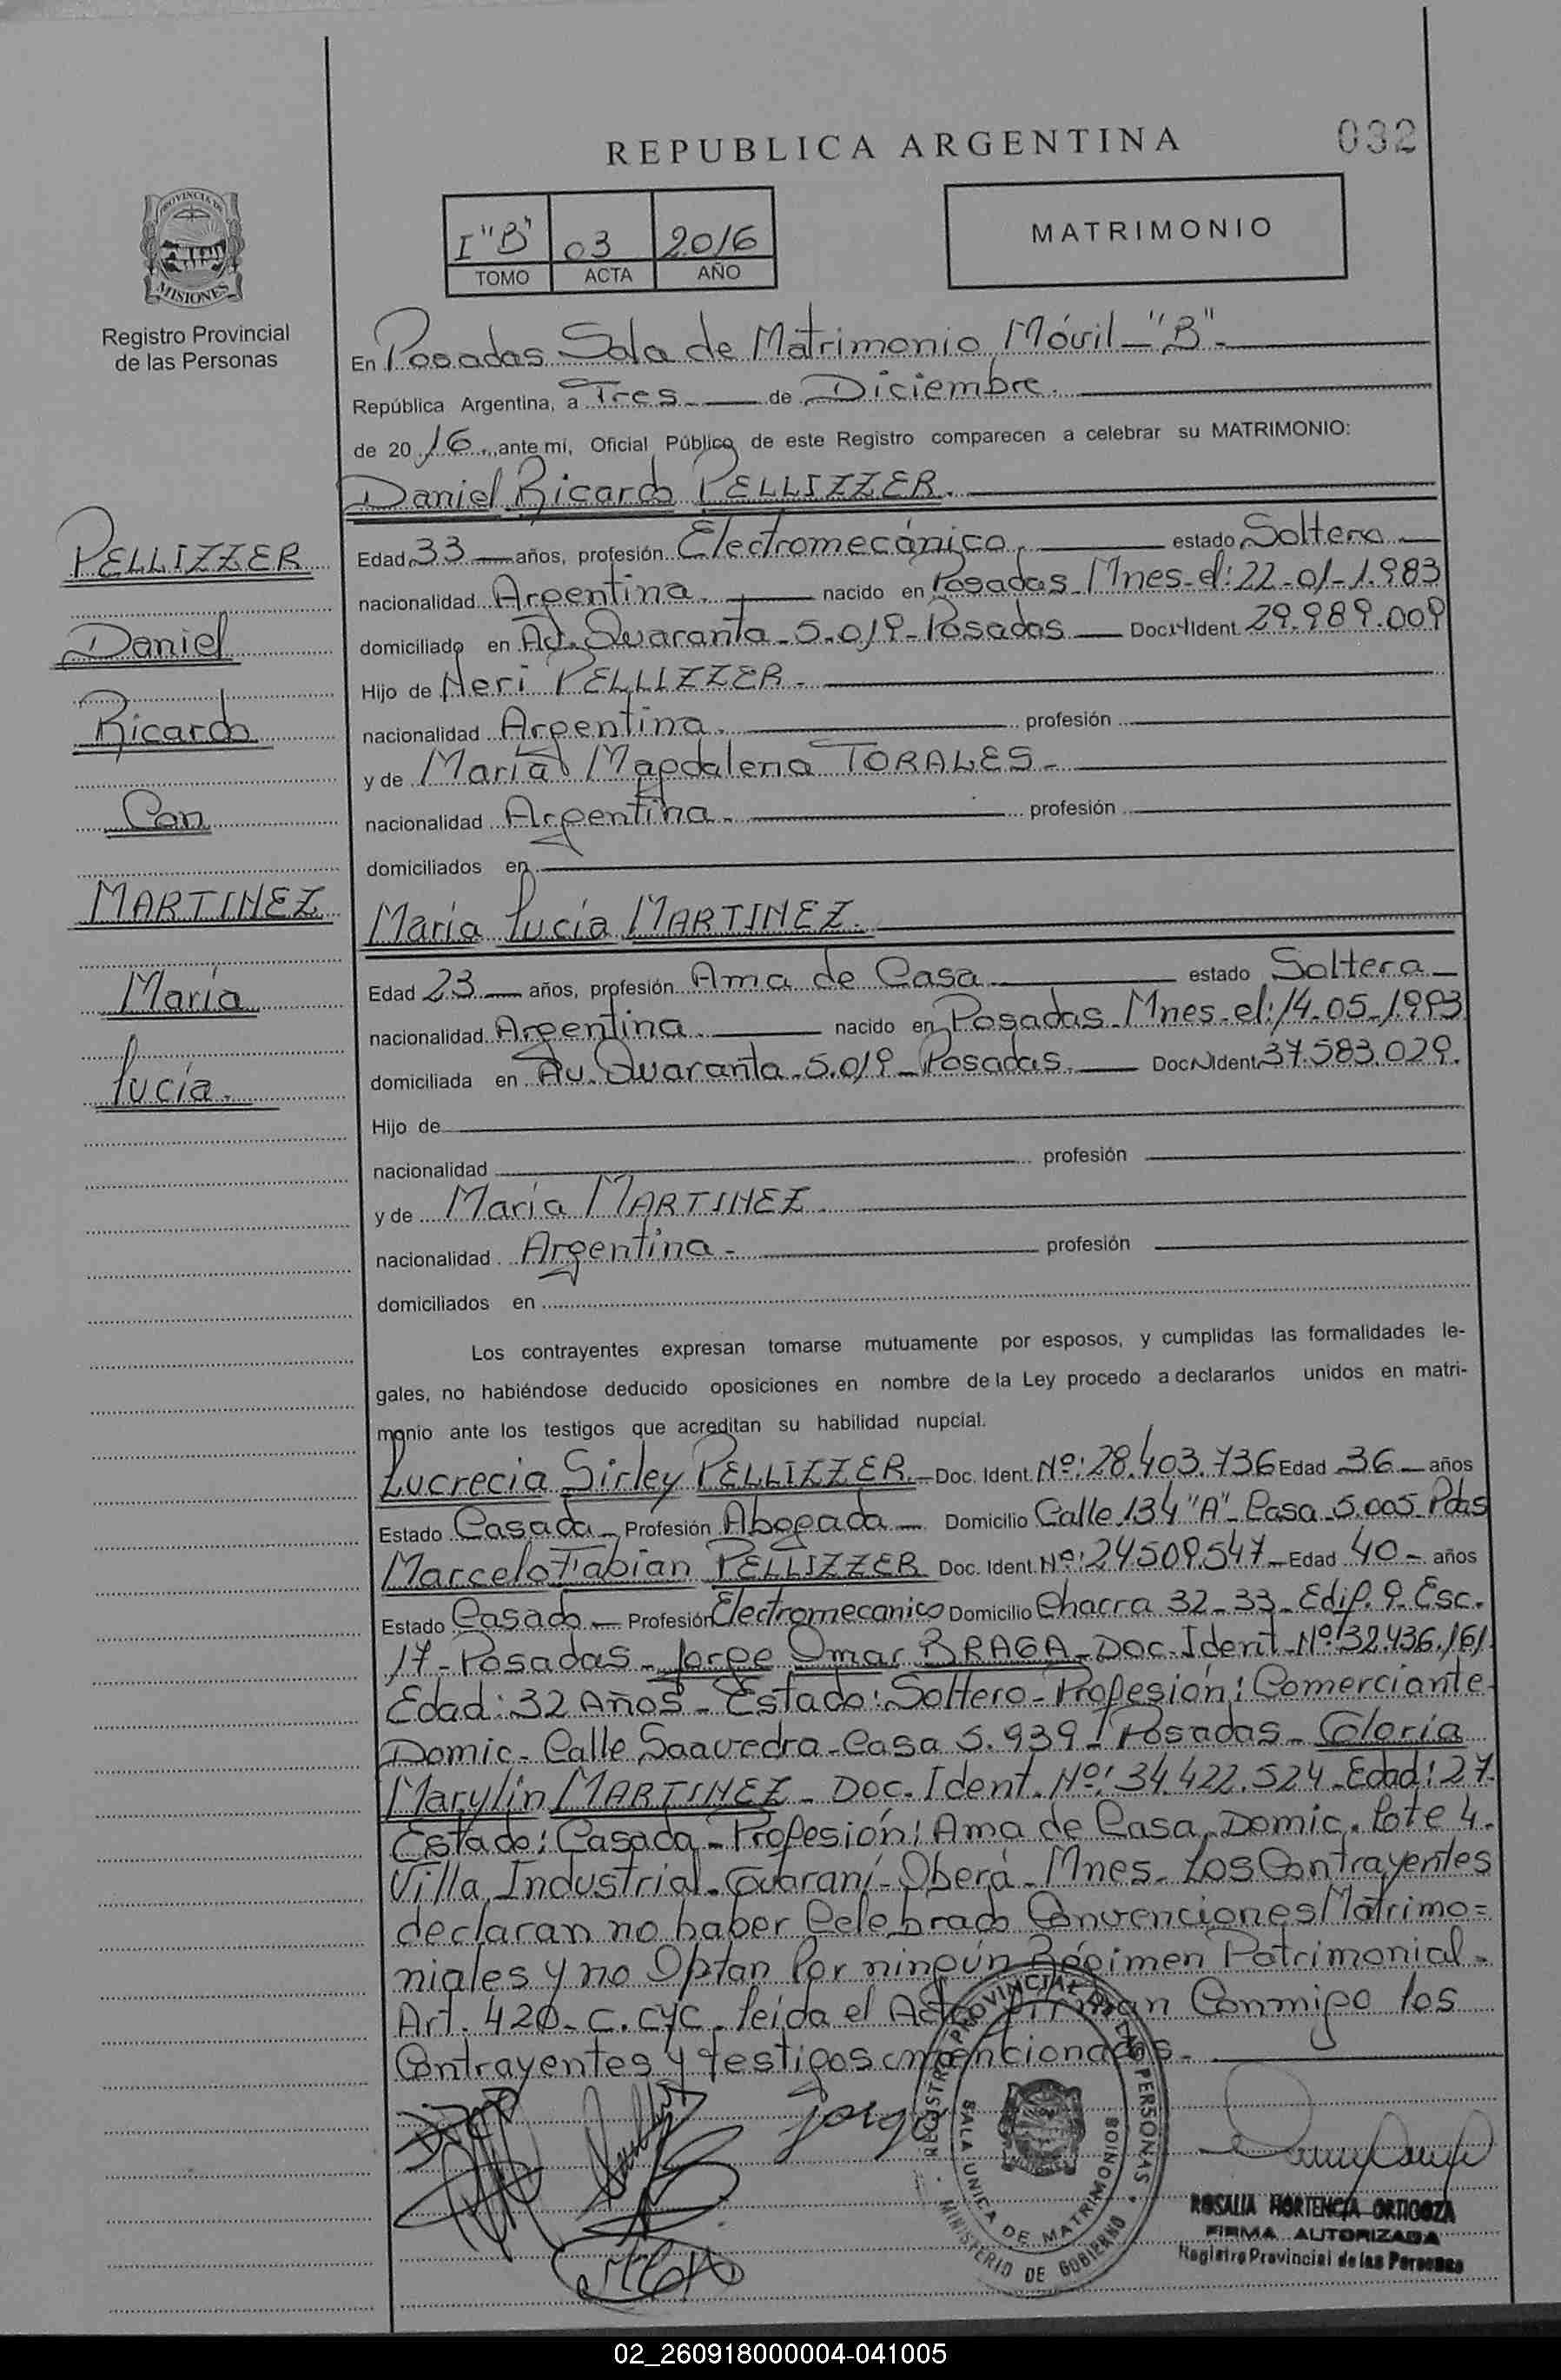 REPUBLICA ARGENTINA
032
PROVINCIA DE
MISIONES
Registro Provincial
de las Personas
I "B" 03 2016
TOMO ACTA AÑO
MATRIMONIO
En Posadas Sala de Matrimonio Móvil - "B"-
República Argentina, a Tres de Diciembre.
de 2016, ante mí, Oficial Público de este Registro comparecen a celebrar su MATRIMONIO:
Daniel Ricardo PELLIZZER.
PELLIZZER
Daniel
Ricardo
Con
MARTINEZ
María
Lucía.
Edad 33 años, profesión Electromecánico. estado Soltero
nacionalidad Argentina. nacido en Posadas Mnes-el: 22-01-1.983
domiciliado en Av. Quaranta-5.019-Posadas Doc. N Ident. 29.989.009
Hijo de Neri PELLIZZER-
nacionalidad Argentina. profesión
y de María Magdalena TORALES-
nacionalidad Argentina- profesión
domiciliados en
María Lucía MARTINEZ.
Edad 23 años, profesión Ama de Casa estado Soltera
nacionalidad Argentina. nacido en Posadas-Mnes-el: 14-05-1993
domiciliada en Av. Quaranta-5.019-Posadas. Doc. N Ident. 37.583.029.
Hijo de
nacionalidad profesión
y de María MARTINEZ.
nacionalidad Argentina- profesión
domiciliados en
Los contrayentes expresan tomarse mutuamente por esposos, y cumplidas las formalidades le-
gales, no habiéndose deducido oposiciones en nombre de la Ley procedo a declararlos unidos en matri-
monio ante los testigos que acreditan su habilidad nupcial.
Lucrecia Sirley PELLIZZER.-Doc. Ident. Nº: 28.403.736 Edad 36 años
Estado Casada- Profesión Abogada- Domicilio Calle 134 "A"-Casa-5.005-Pdas
Marcelo Fabian PELLIZZER Doc. Ident. Nº: 24509547-Edad 40- años
Estado Casado- Profesión Electromecanico Domicilio Chacra 32-33-Edif. 9-Esc.
17-Posadas-Jorge Omar BRAGA-Doc. Ident-Nº: 32.436.161.
Edad: 32 Años-Estado: Soltero-Profesión: Comerciante-
Domic-Calle Saavedra-Casa 5.939-Posadas-Gloria
Marylin MARTINEZ-Doc. Ident. Nº: 34.422.524-Edad: 27-
Estado: Casada-Profesión: Ama de Casa-Domic. Lote 4.
Villa Industrial-Guaraní-Oberá-Mnes-Los Contrayentes
declaran no haber Celebrado Convenciones Matrimo=
niales y no Optan Por ningún Régimen Patrimonial-
Art. 420-C.CyC-leída el Acta Firman Conmigo los
Contrayentes y testigos mencionados-
Jorge
REGISTRO PROVINCIAL DE LAS PERSONAS
SALA UNICA DE MATRIMONIOS
MINISTERIO DE GOBIERNO
ROSALIA HORTENCIA ORTIGOZA
FIRMA AUTORIZADA
Registro Provincial de las Personas
02_260918000004-041005